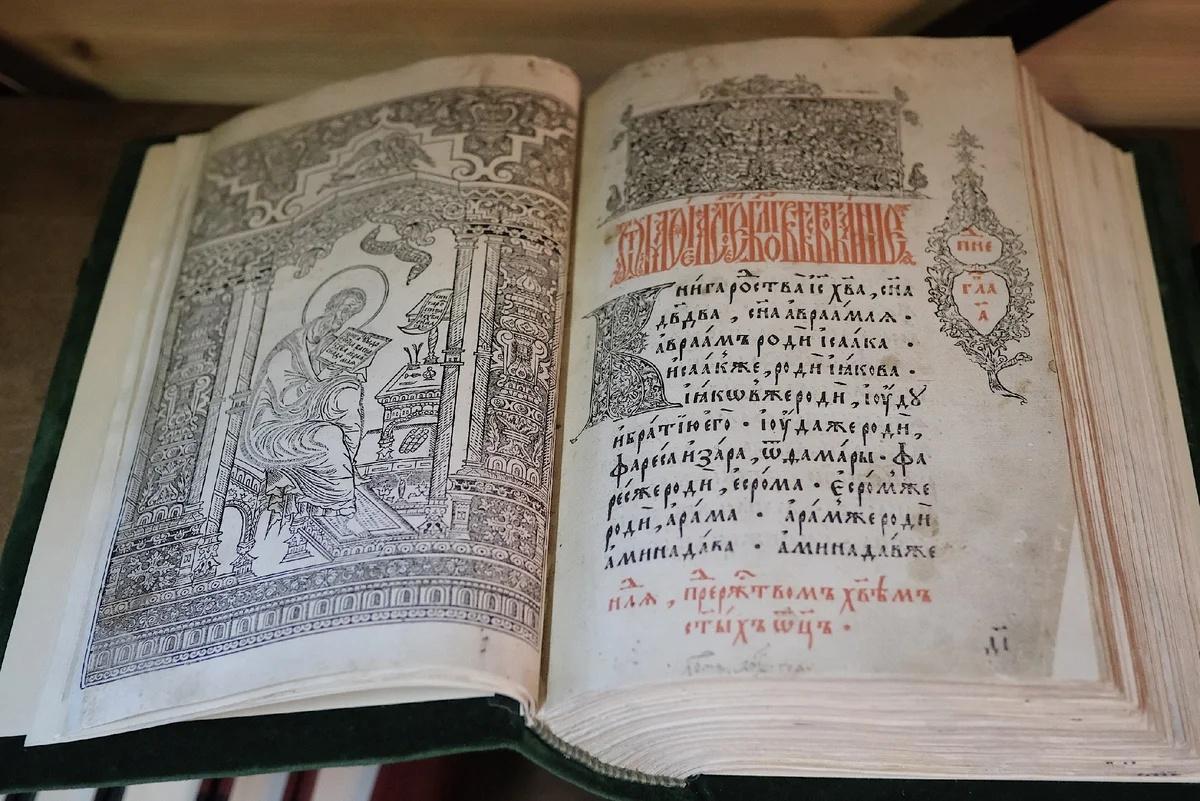 Книга роⷭ҇ства і҃с х҃ва, с҃на
дв҃два, с҃на авраамлѧ ·
авраамъ роди исаака ·
исаакже, роди іакова ·
іакѡвже роди, іоуду
и братїю его · іоуда же роди,
фареса и зара, ѿ ѳамары · фа
ресже роди, есрома · Есромже
роди, арама · арамже роди
аминадава · аминадавже
нⷣлѧ, преⷣ рⷤтⷭ҇вомъ х҃вѣмъ
ст҃ыхъ ѡ҃цъ ·
пⷣне
гла
а҃